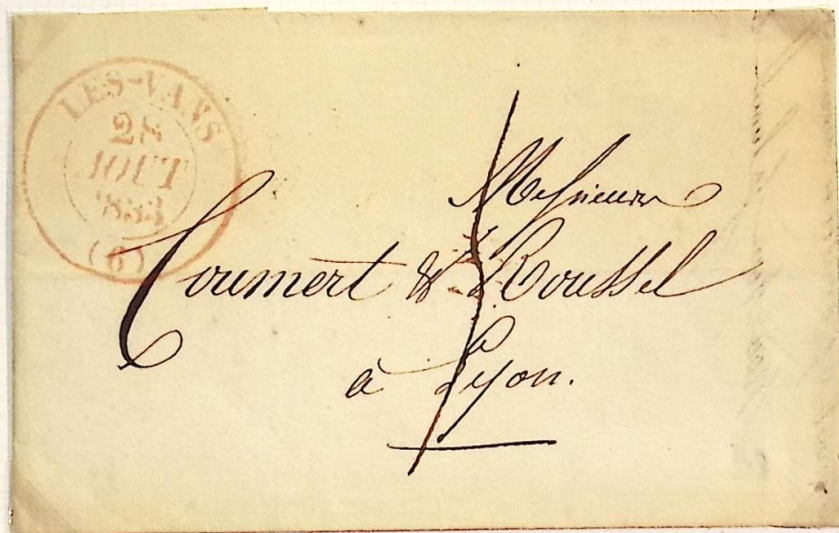 LES-VANS
28
AOUT
1833
(6)
Messieurs
Coumert & Roussel
à Lyon.